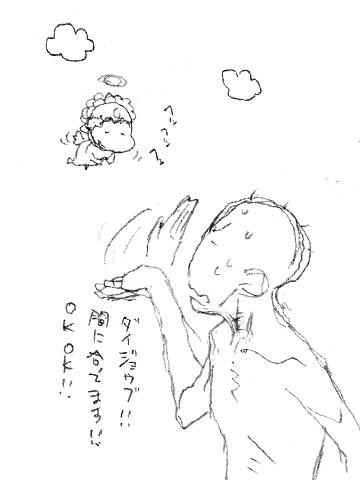 ヘコヘコ
ダイジョウブ!!
間に合ってます!!
OK OK!!